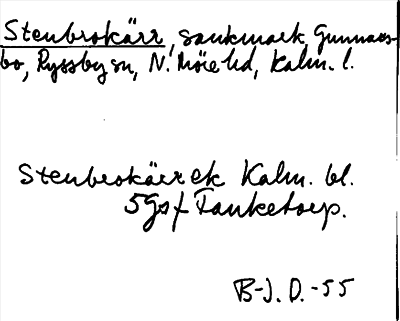 Stenbrokärr, sankmark, Gunnars-
bo, Ryssby sn, N. Möre hd, Kalm. l.
Stenbrokärr ek Kalm. bl.
5 Gs f Tanketorp.
B-J. D. -55